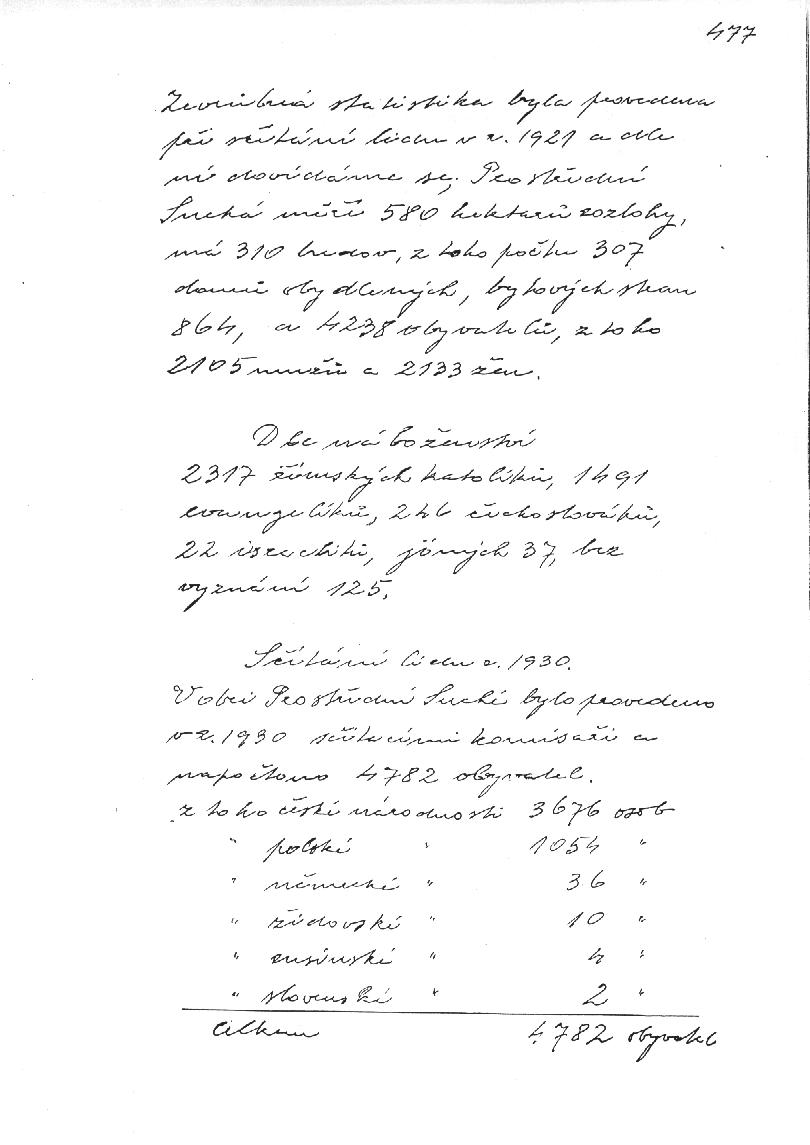 477
Zevrubná statistika byla provedena
při sčítání lidu v r. 1921 a dle
ní dovídáme se, Prostřední
Suchá měří 580 hektarů rozlohy,
má 310 budov, z toho počtu 307
domů obydlených, bytových stran
864, a 4238 obyvatelů, z toho
2105 mužů a 2133 žen.
Dle náboženství
2317 římských katolíků, 1491
evangelíků, 246 čechoslováků,
22 israelitů, jiných 37, bez
vyznání 125.
Sčítání lidu r. 1930.
V obci Prostřední Suché bylo provedeno
v r. 1930 sčítacími komisaři a
napočteno 4782 obyvatel.
z toho české národnosti 3676 osob
" polské " 1054 "
" německé " 36 "
" židovské " 10 "
" rusínské " 4 "
" slovenské " 2 "
Celkem 4782 obyvatel